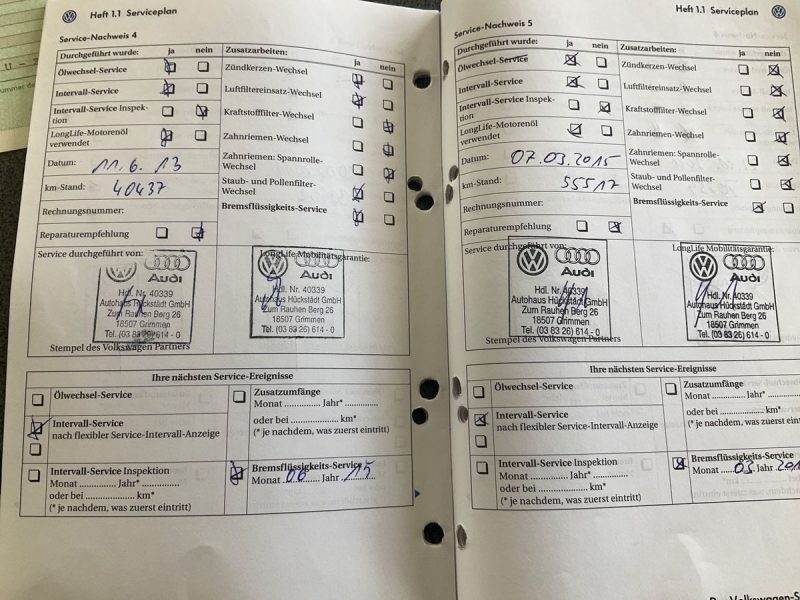 Heft 1.1 Serviceplan
Service-Nachweis 4
Durchgeführt wurde: ja nein
Zusatzarbeiten: ja nein
Ölwechsel-Service
Intervall-Service
Intervall-Service Inspek-
tion
LongLife-Motorenöl
verwendet
Datum: 11.6.13
km-Stand: 40437
Rechnungsnummer:
Reparaturempfehlung
Zündkerzen-Wechsel
Luftfiltereinsatz-Wechsel
Kraftstofffilter-Wechsel
Zahnriemen-Wechsel
Zahnriemen: Spannrolle-
Wechsel
Staub- und Pollenfilter-
Wechsel
Bremsflüssigkeits-Service
Service durchgeführt von:
LongLife Mobilitätsgarantie:
Audi
Hdl. Nr. 40339
Autohaus Hückstädt GmbH
Zum Rauhen Berg 26
18507 Grimmen
Tel. (03 83 26) 614 - 0
Audi
Hdl. Nr. 40339
Autohaus Hückstädt GmbH
Zum Rauhen Berg 26
18507 Grimmen
Tel. (03 83 26) 614 - 0
Stempel des Volkswagen Partners
Ihre nächsten Service-Ereignisse
Ölwechsel-Service
Intervall-Service
nach flexibler Service-Intervall-Anzeige
Intervall-Service Inspektion
Monat ............... Jahr* ...............
oder bei ............... km*
(* je nachdem, was zuerst eintritt)
Zusatzumfänge
Monat ............... Jahr* ...............
oder bei ............... km*
(* je nachdem, was zuerst eintritt)
Bremsflüssigkeits-Service
Monat 06 Jahr 15
Heft 1.1 Serviceplan
Service-Nachweis 5
Durchgeführt wurde: ja nein
Zusatzarbeiten: ja nein
Ölwechsel-Service
Intervall-Service
Intervall-Service Inspek-
tion
LongLife-Motorenöl
verwendet
Datum: 07.03.2015
km-Stand: 55517
Rechnungsnummer:
Reparaturempfehlung
Zündkerzen-Wechsel
Luftfiltereinsatz-Wechsel
Kraftstofffilter-Wechsel
Zahnriemen-Wechsel
Zahnriemen: Spannrolle-
Wechsel
Staub- und Pollenfilter-
Wechsel
Bremsflüssigkeits-Service
Service durchgeführt von:
LongLife Mobilitätsgarantie:
Audi
Hdl. Nr. 40339
Autohaus Hückstädt GmbH
Zum Rauhen Berg 26
18507 Grimmen
Tel. (03 83 26) 614 - 0
Audi
Hdl. Nr. 40339
Autohaus Hückstädt GmbH
Zum Rauhen Berg 26
18507 Grimmen
Tel. (03 83 26) 614 - 0
Stempel des Volkswagen Partners
Ihre nächsten Service-Ereignisse
Ölwechsel-Service
Intervall-Service
nach flexibler Service-Intervall-Anzeige
Intervall-Service Inspektion
Monat ............... Jahr* ...............
oder bei ............... km*
(* je nachdem, was zuerst eintritt)
Zusatzumfänge
Monat ............... Jahr*
oder bei ............... km*
(* je nachdem, was zuerst eintritt)
Bremsflüssigkeits-Service
Monat 03 Jahr 201